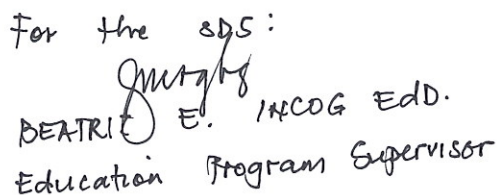 For the SDS:
BEATRIZ E. INCOG EdD.
Education Program Supervisor